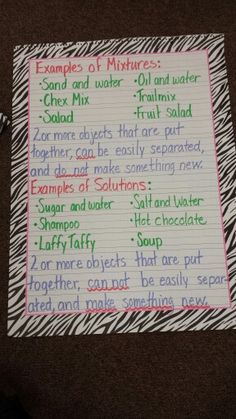 Examples of Mixtures:
·Sand and water ·Oil and water
·Chex Mix ·Trailmix
·Salad ·Fruit salad
2 or more objects that are put
together, can be easily separated,
and do not make something new.
Examples of Solutions:
·Sugar and water ·Salt and Water
·Shampoo ·Hot chocolate
·Laffy Taffy ·Soup
2 or more objects that are put
together, can not be easily separ-
ated, and make something new.